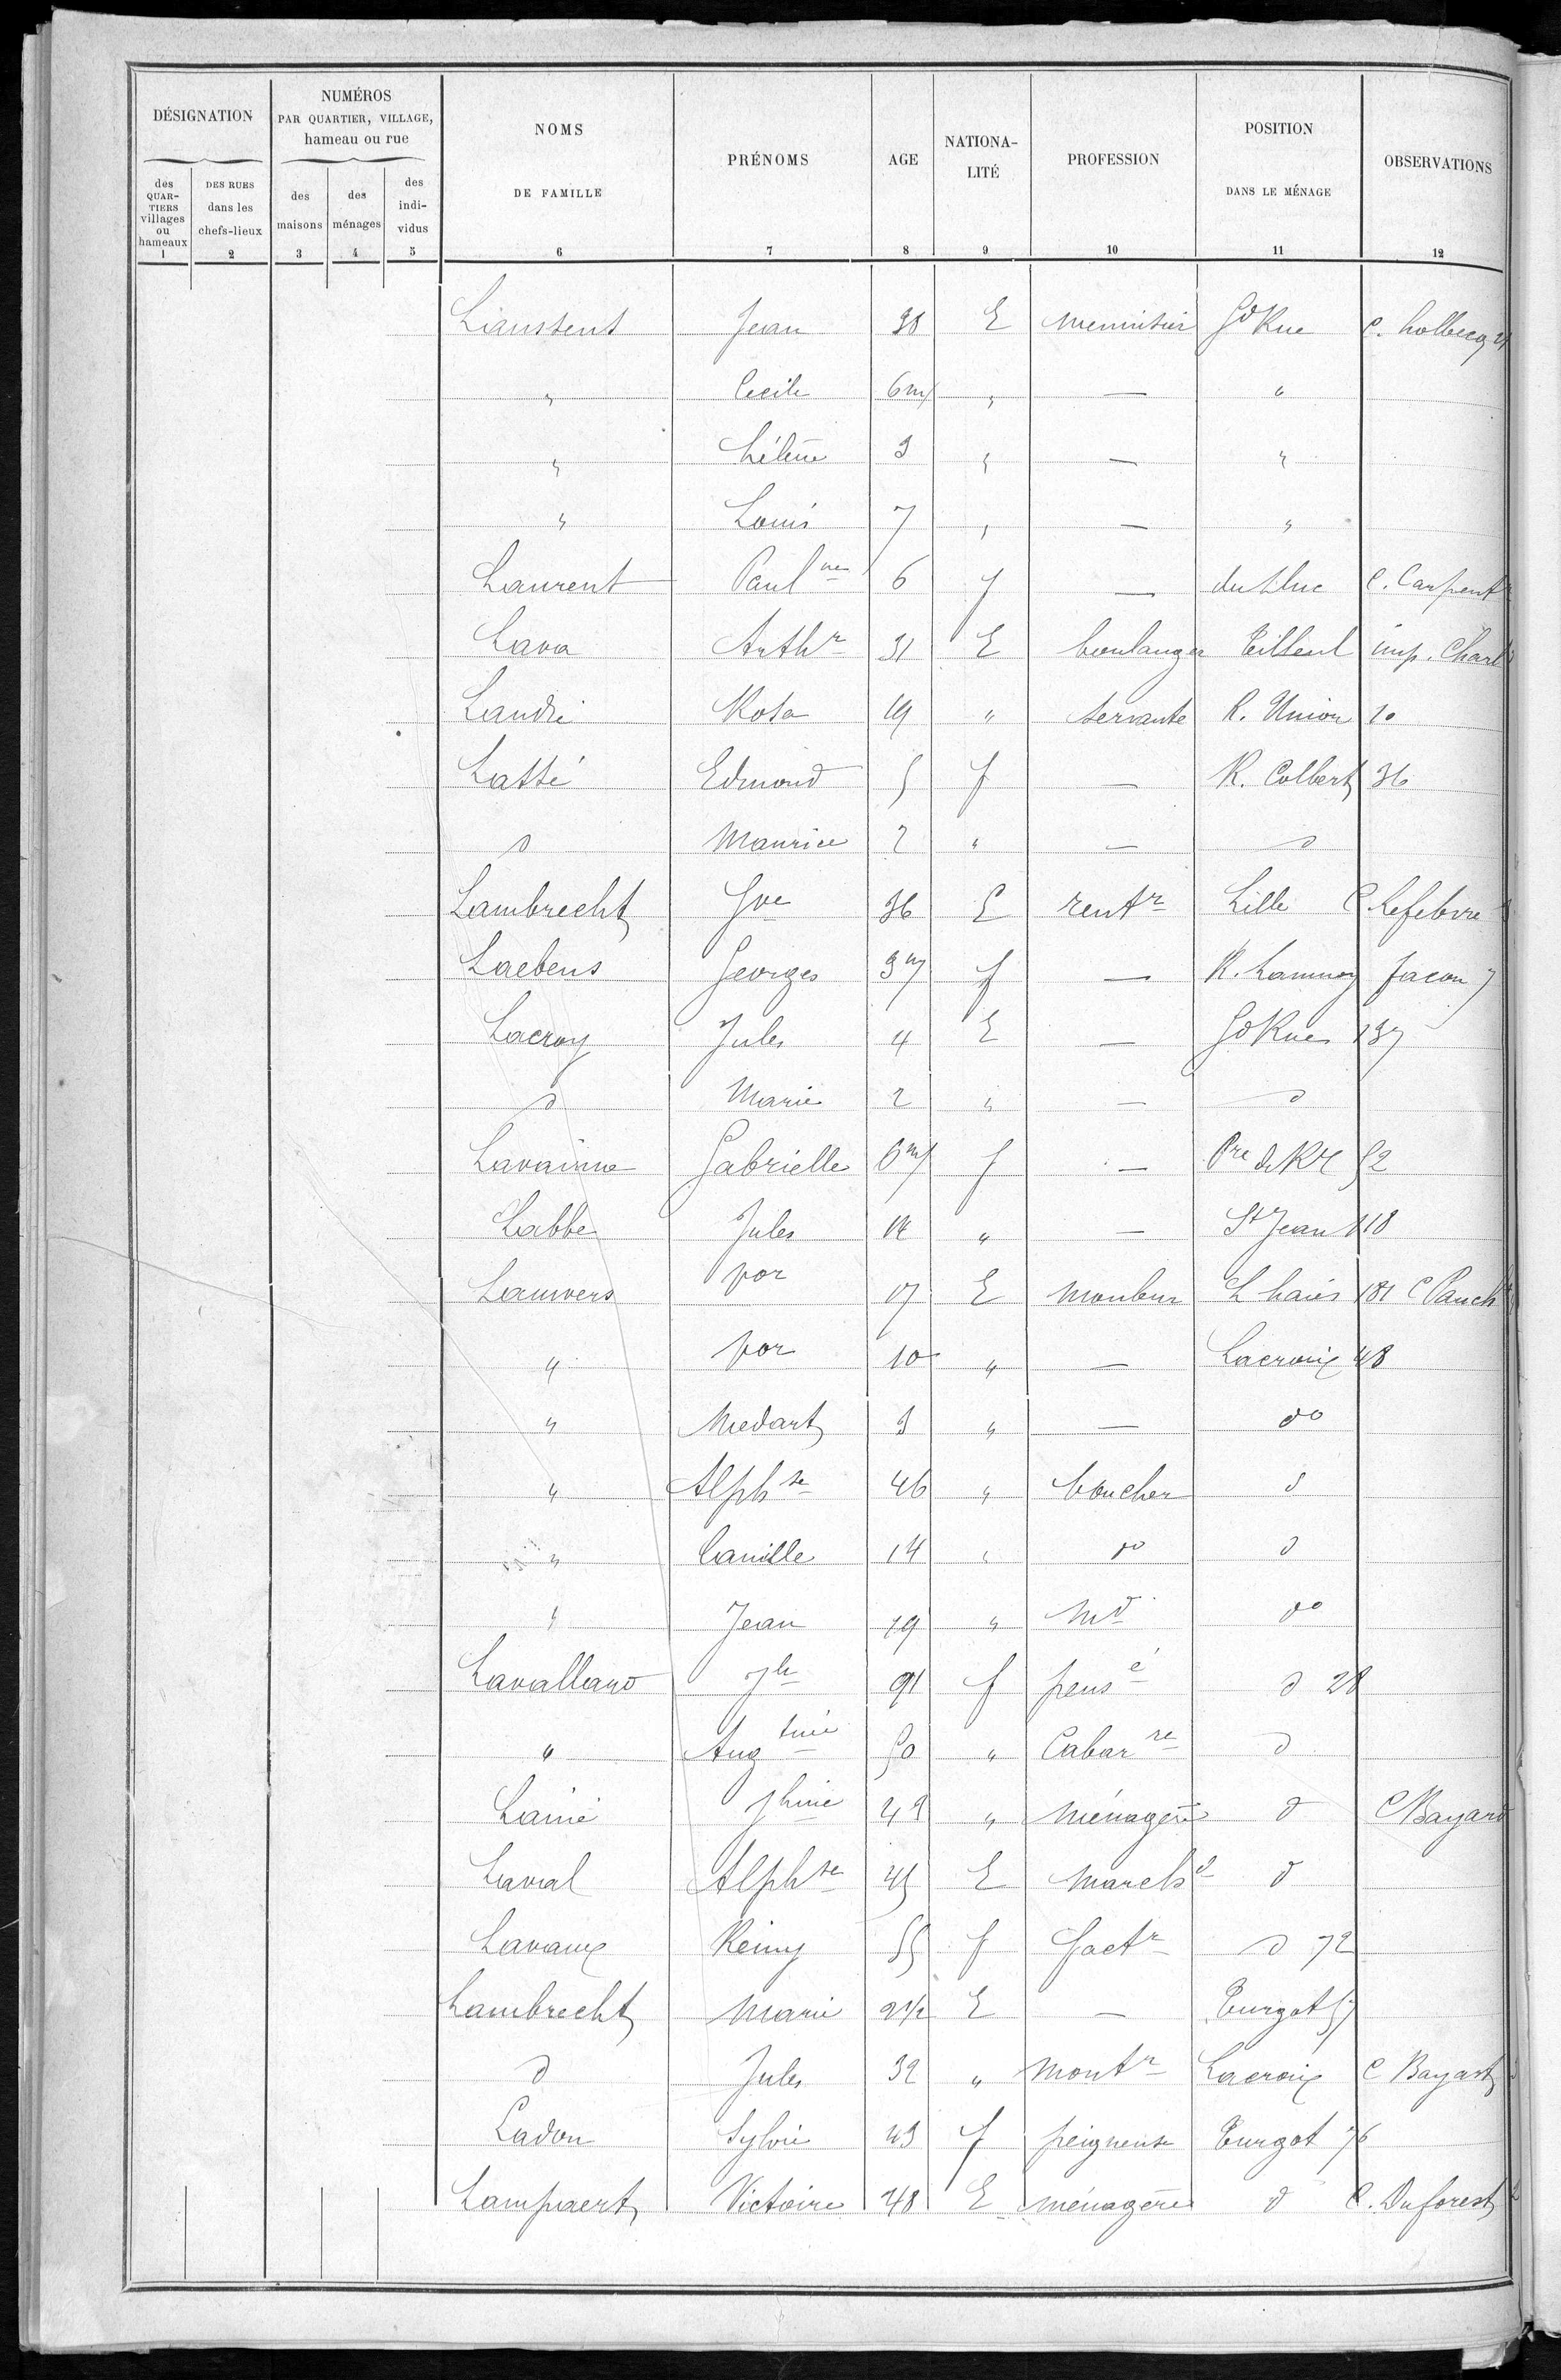 DÉSIGNATION
NUMÉROS
PAR QUARTIER, VILLAGE,
hameau ou rue
NOMS
DE FAMILLE
PRÉNOMS
AGE
NATIONA-
LITÉ
PROFESSION
POSITION
DANS LE MÉNAGE
OBSERVATIONS
des
QUAR-
TIERS
villages
ou
hameaux
DES RUES
dans les
chefs-lieux
des
maisons
des
ménages
des
indi-
vidus
1 2 3 4 5 6 7 8 9 10 11 12
Jean 38 E menuisier Gd Rue C. Holbecq
" Cecile 6m " — "
" Hélène 3 " — "
" Louis 7 " — "
Laurent Paul ne 6 f — du Duc C. Carpent
Lava Arthr 31 E boulanger Tilleul imp. Charl
Landri Rosa 19 " servante R. Union 10
Lassé Edmond 5 f — R. Colbert 36
d Maurice 2 " — d
Lambrecht Gve 36 E rentr Lille C Lefebvre
Laebens Georges 3m f — R. Lannoy Jacon 7
Lacroy Jules 4 E — Gd Rue 137
d Marie 2 " — d
Lavainne Gabrielle 6m f — Pre de Rx 52
Labbe Jules 14 " — St Jean 118
Lauwers por 17 E mouleur L haies 181 C Pauch
" por 10 " — Lacroix 48
" Medart 3 " — do
" Alphse 46 " boucher d
" Camille 14 " do d
" Jean 19 " Md do
Lavallard Jh 91 f pensé d 28
" Aug tine 50 " Cabar re d
Lainé Jhine 49 " ménagère d C Bayard
Laval Alphse 45 E Marchd d
Lavaux Rémy 55 f factr d 72
Lambrecht Marie 2 1/2 E — Turgot 57
d Jules 32 " Montr Lacroix C Bayart
Ladon Sylvie 43 f peigneuse Turgot 76
Lampaert Victoire 48 E ménagère d C. Duforest